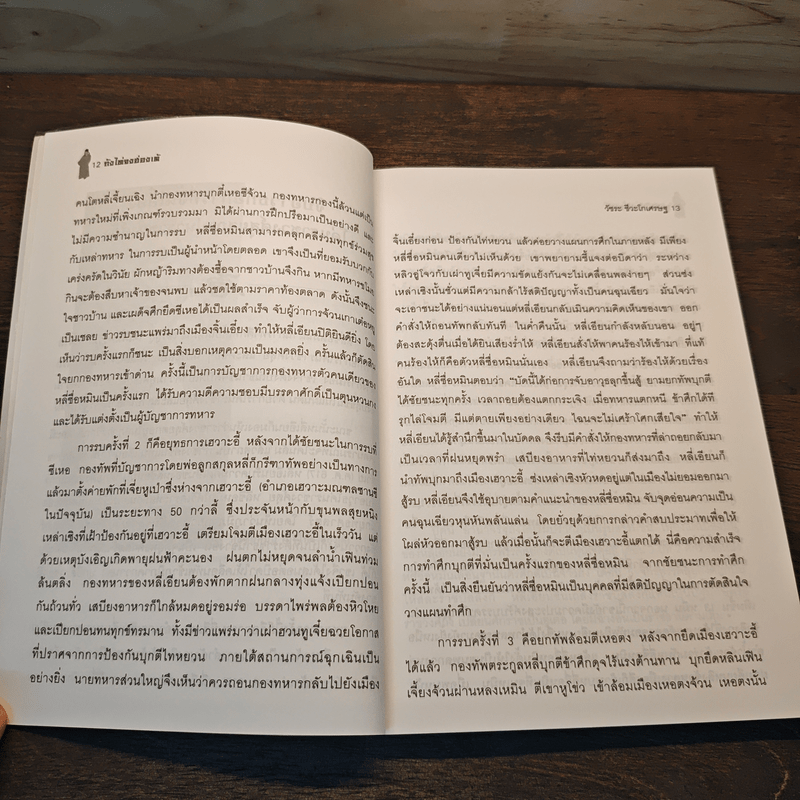 12 ถังไท่จงฮ่องเต้
คนโตหลี่เจี้ยนเฉิง นำกองทหารบุกตีเหอซีจ้วน กองทหารกองนี้ล้วนแต่เป็น
ทหารใหม่ที่เพิ่งเกณฑ์รวบรวมมา มิได้ผ่านการฝึกปรือมาเป็นอย่างดี และ
ไม่มีความชำนาญในการรบ หลี่ซื่อหมินสามารถคลุกคลีร่วมทุกข์ร่วมสุข
กับเหล่าทหาร ในการรบเป็นผู้นำหน้าโดยตลอด เขาจึงเป็นที่ยอมรับบวกกับ
เคร่งครัดในวินัย ผักหญ้าริมทางต้องซื้อจากชาวบ้านจึงกิน หากมีทหารขโมย
กินจะต้องสืบหาเจ้าของจนพบ แล้วชดใช้ตามราคาท้องตลาด ดังนั้นจึงชนะ
ใจชาวบ้าน และเผด็จศึกยึดซีเหอได้เป็นผลสำเร็จ จับผู้ว่าการจ้วนเกาเต๋อหยู
เป็นเชลย ข่าวรบชนะแพร่มาถึงเมืองจิ้นเอี๋ยง ทำให้หลี่เอียนปิติยินดียิ่ง โดย
เห็นว่ารบครั้งแรกก็ชนะ เป็นสิ่งบอกเหตุความเป็นมงคลยิ่ง ครั้นแล้วก็ตัดสิน
ใจยกกองทหารเข้าด่าน ครั้งนี้เป็นการบัญชาการกองทหารตัวคนเดียวของ
หลี่ซื่อหมินเป็นครั้งแรก ได้รับความดีความชอบมีบรรดาศักดิ์เป็นตุนหวนกง
และได้รับแต่งตั้งเป็นผู้บัญชาการทหาร
การรบครั้งที่ 2 ก็คือยุทธการเฮวาะอี้ หลังจากได้ชัยชนะในการรบที่
ซีเหอ กองทัพที่บัญชาการโดยพ่อลูกสกุลหลี่ก็กรีฑาทัพอย่างเป็นทางการ
แล้วมาตั้งค่ายพักที่เจี่ยหูเป่าซึ่งห่างจากเฮวาะอี้ (อำเภอเฮวาะมณฑลซานซี
ในปัจจุบัน) เป็นระยะทาง 50 กว่าลี้ ซึ่งประจันหน้ากับขุนพลสุยหนิง
เหล่าเชิงที่เฝ้าป้องกันอยู่ที่เฮวาะอี้ เตรียมโจมตีเมืองเฮวาะอี้ในเร็ววัน แต่
ด้วยเหตุบังเอิญเกิดพายุฝนฟ้าคะนอง ฝนตกไม่หยุดจนลำน้ำเฟินท่วม
ล้นตลิ่ง กองทหารของหลี่เอียนต้องพักตากฝนกลางทุ่งแจ้งเปียกปอน
กันถ้วนทั่ว เสบียงอาหารก็ใกล้หมดอยู่รอมร่อ บรรดาไพร่พลต้องหิวโหย
และเปียกปอนทนทุกข์ทรมาน ทั้งมีข่าวแพร่มาว่าเผ่าฮวนทูเจี๋ยฉวยโอกาส
ที่ปราศจากการป้องกันบุกตีไท่หยวน ภายใต้สถานการณ์ฉุกเฉินเป็น
อย่างยิ่ง นายทหารส่วนใหญ่จึงเห็นว่าควรถอนกองทหารกลับไปยังเมือง
วัชระ ชีวะโกเศรษฐ 13
จิ้นเอี๋ยงก่อน ป้องกันไท่หยวน แล้วค่อยวางแผนการศึกในภายหลัง มีเพียง
หลี่ซื่อหมินคนเดียวไม่เห็นด้วย เขาพยายามชี้แจงต่อบิดาว่า ระหว่าง
หลิวอู่โจวกับเผ่าทูเจี๋ยมีความขัดแย้งกันจะไม่เคลื่อนพลง่ายๆ ส่วนซ่ง
เหล่าเชิงนั้นซั่วแต่มีความกล้าไร้สติปัญญาทั้งเป็นคนฉุนเฉียว มั่นใจว่า
จะเอาชนะได้อย่างแน่นอนแต่หลี่เอียนกลับเมินความคิดเห็นของเขา ออก
คำสั่งให้ถอนทัพกลับทันที ในค่ำคืนนั้น หลี่เอียนกำลังหลับนอน อยู่ๆ
ต้องสะดุ้งตื่นเมื่อได้ยินเสียงร่ำไห้ หลี่เอียนสั่งให้พาคนร้องไห้เข้ามา ที่แท้
คนร้องไห้ก็คือตัวหลี่ซื่อหมินนั่นเอง หลี่เอียนจึงถามว่าร้องไห้ด้วยเรื่อง
อันใด หลี่ซื่อหมินตอบว่า "บัดนี้ได้ก่อการจับอาวุธลุกขึ้นสู้ ยามยกทัพบุกตี
ได้ชัยชนะทุกครั้ง เวลาถอยต้องแตกกระเจิง เมื่อทหารแตกหนี ข้าศึกได้ที
รุกไล่โจมตี มีแต่ตายเพียงอย่างเดียว ไฉนจะไม่เศร้าโศกเสียใจ" ทำให้
หลี่เอียนได้รู้สำนึกขึ้นมาในบัดดล จึงรีบมีคำสั่งให้กองทหารที่ล่าถอยกลับมา
เป็นเวลาที่ฝนหยุดพรำ เสบียงอาหารที่ไท่หยวนก็ส่งมาถึง หลี่เอียนก็
นำทัพบุกมาถึงเมืองเฮวาะอี้ ซ่งเหล่าเชิงหัวหดอยู่แต่ในเมืองไม่ยอมออกมา
สู้รบ หลี่เอียนจึงใช้อุบายตามคำแนะนำของหลี่ซื่อหมิน จับจุดอ่อนความเป็น
คนฉุนเฉียวหุนหันพลันแล่น โดยยั่วยุด้วยการกล่าวคำสบประมาทเพื่อให้
โผล่หัวออกมาสู้รบ แล้วเมื่อนั้นก็จะตีเมืองเฮวาะอี้แตกได้ นี่คือความสำเร็จ
การทำศึกบุกตีที่มั่นเป็นครั้งแรกของหลี่ซื่อหมิน จากชัยชนะการทำศึก
ครั้งนี้ เป็นสิ่งยืนยันว่าหลี่ซื่อหมินเป็นบุคคลที่มีสติปัญญาในการตัดสินใจ
วางแผนทำศึก
การรบครั้งที่ 3 คือยกทัพล้อมตีเหอตง หลังจากยึดเมืองเฮวาะอี้
ได้แล้ว กองทัพตระกูลหลี่บุกตีข้าศึกดุจไร้แรงต้านทาน บุกยึดหลินเฟิน
เจี้ยงจ้วนผ่านหลงเหมิน ตีเขาหูโข่ว เข้าล้อมเมืองเหอตงจ้วน เหอตงนั้น